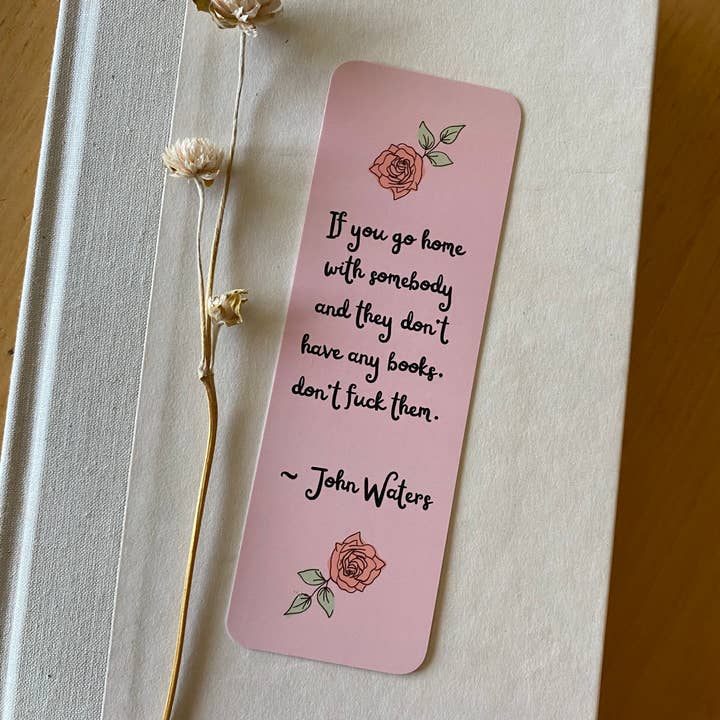 If you go home
with somebody
and they don't
have any books.
don't fuck them.
~ John Waters